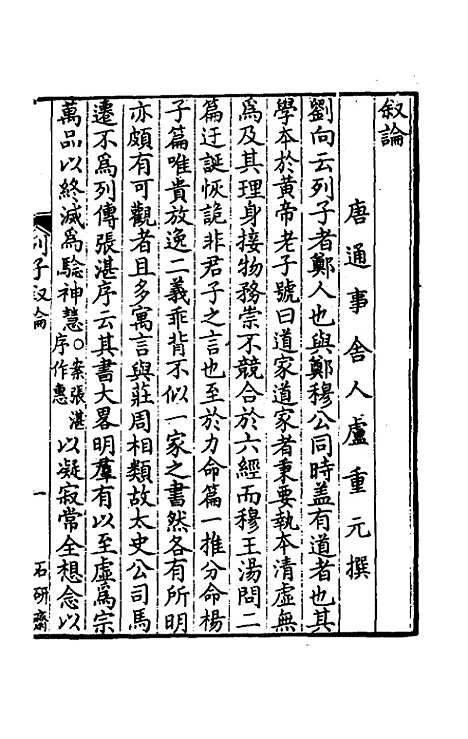 叙論
唐通事舍人盧重元撰
劉向云列子者鄭人也與鄭穆公同時盖有道者也其
學本於黄帝老子號曰道家道家者秉要執本清虚無
爲及其理身接物務崇不競合於六經而穆王湯問二
篇迂誕恢詭非君子之言也至於力命篇一推分命楊
子篇唯貴放逸二義乖背不似一家之書然各有所明
亦頗有可觀者且多寓言與莊周相類故太史公司馬
遷不爲列傳張湛序云其書大畧明羣有以至虚爲宗
萬品以終滅爲驗神慧○案張湛序作惠以凝寂常全想念以
列子叙論
一
石研齋